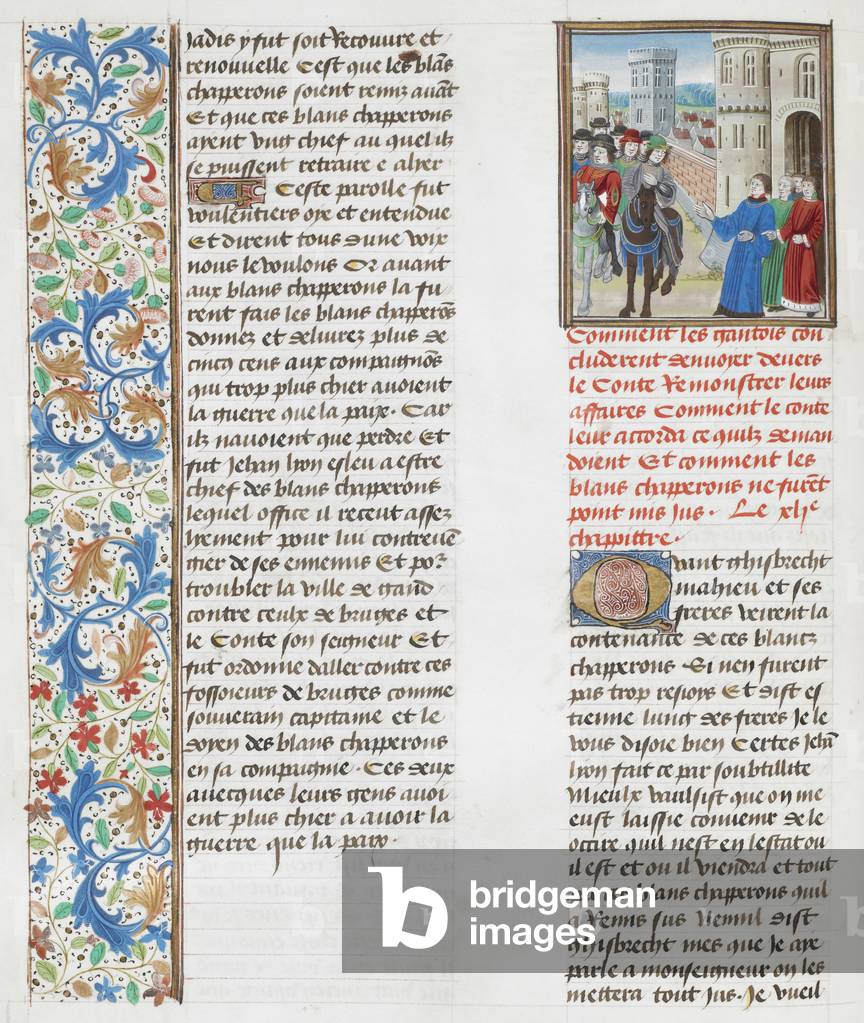 Jadis y fut soit Recouure et
renouuelle Cest que les blãs
chapperons soient remiz auãt
Et que ces blans chapperons
ayent vng chief au quel ilz
se puissent retraire e alyer
Ceste parolle fut
voulentiers oye et entendue
Et dirent tous dune voix
nous le voulons Or auant
aux blans chapperons la fu
rent fais les blans chapperõs
donnez et deliurez plus de
cincq cens aux compaignõs
qui trop plus chier auoient
la guerre que la paix. Car
ilz nauoient que perdre Et
fut Jehan lyon esleu a estre
chief des blans chapperons
lequel office il receut assez
liement pour lui contreuẽ
gier de ses ennemis Et por
troubler la ville de gand
contre ceulx de bruges et
le Conte son seigneur Et
fut ordonne daller contre ces
fossoieurs de bruges comme
souuerain capitaine et le
doyen des blans chapperons
en sa compaignie. Ces deux
auecques leurs gens auoi
ent plus chier a auoir la
guerre que la paix.
Comment les gantois con
cluderent denuoyer deuers
le Conte Remonstrer leurs
affaires Comment le conte
leur accorda ce quilz deman
doient Et comment les
blans chapperons ne furẽt
point mis jus. Le xlie
chappittre.
Quant ghisbrecht
mahieu et ses
freres veirent la
contenance de ces blancz
chapperons Si nen furent
pas trop resioys Et dist es
tienne lung des freres Je le
vous disoie bien Certes Jehã
lyon fait ce par soubtillite
Mieulx vaulsist que on me
eust laissie conuenir de le
occire quil nest en lestat ou
il est et ou il viendra et tout
blans chapperons quil
a Remis sus Nennil dist
ghisbrecht mes que Je aye
parle a monseigneur on les
mettera tout jus. Je vueil
bridgeman
images